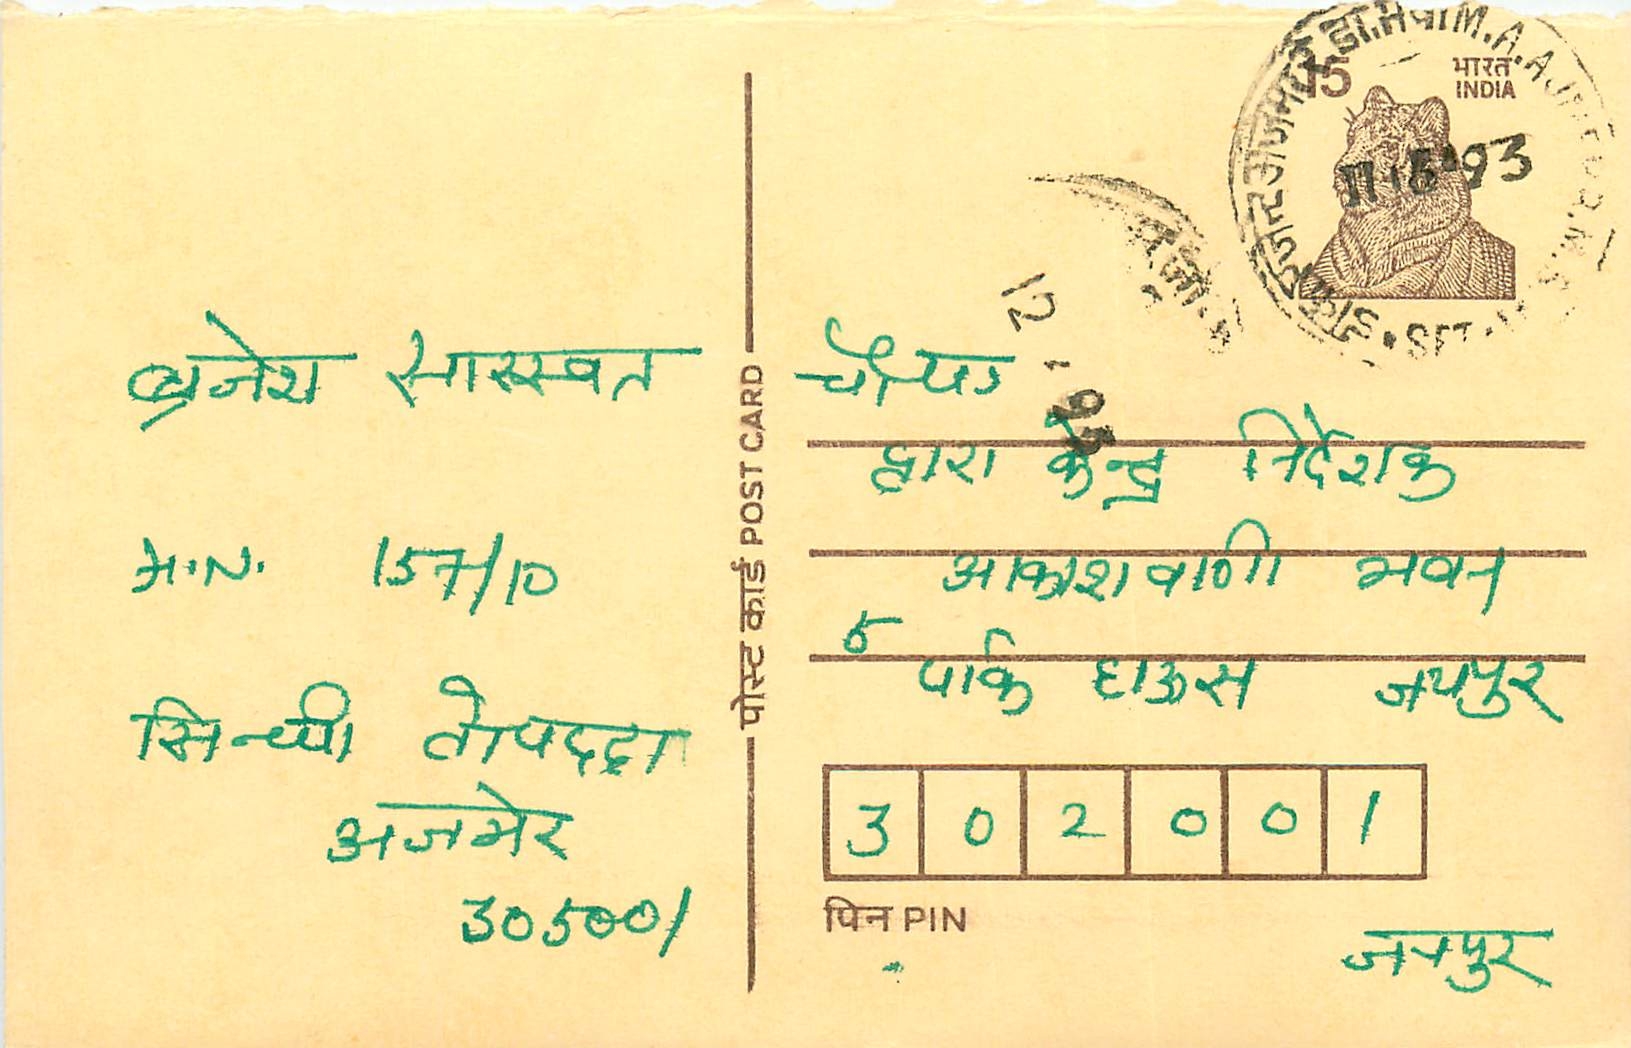 15
भारत
INDIA
93
12
93
ब्रजेश सारस्वत
म.न. 157/10
सिन्धी तोपदडा
अजमेर
305001
पोस्ट कार्ड POST CARD
चौपाल
द्वारा केन्द्र निर्देशक
आकाशवाणी भवन
5 पार्क हाऊस जयपुर
3 0 2 0 0 1
पिन PIN
जयपुर